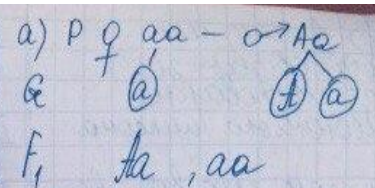 а) P ♀ aa – ♂ Aa
G a A a
F₁ Aa, aa